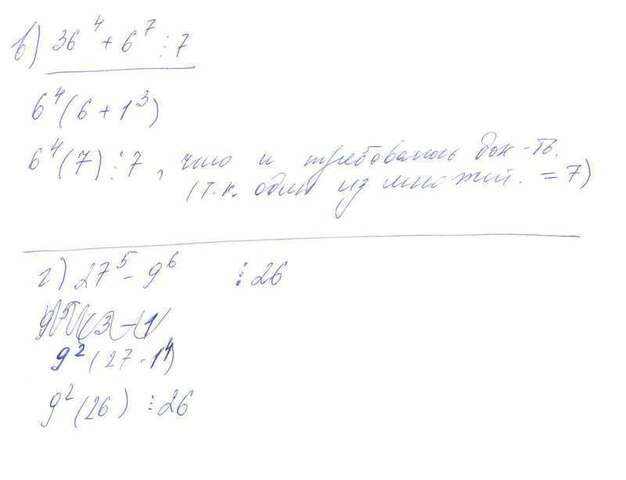 в) 36⁴ + 6⁷ ⋮ 7
6⁴(6 + 1³)
6⁴(7) ⋮ 7, что и требовалось док-ть.
(т.к. один из множит. = 7)
г) 27⁵ - 9⁶ ⋮ 26
9²(27 - 1⁴)
9²(26) ⋮ 26